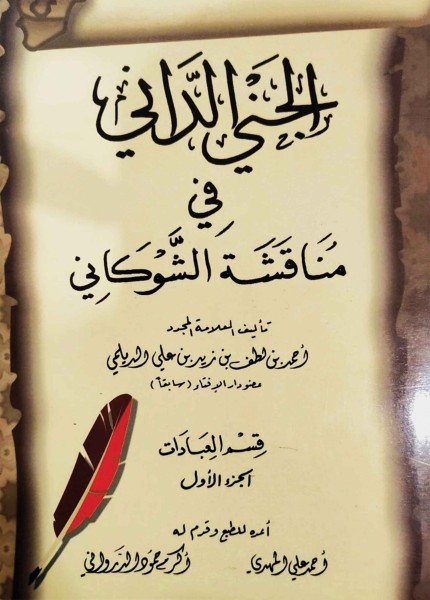 الجَنَي الدَّاني
فِي
مُنَاقَشَة الشَّوكَاني
تأليف العلامة المجدد
أحمد بن لطف بن زيد بن علي الديلمي
عضو دار الإفتاء (سابقاً)
قِسْم العِبَادَات
الجزء الأول
أعده للطبع وقدم له
أحمد علي المهدي
أكرم حمود الذرواني